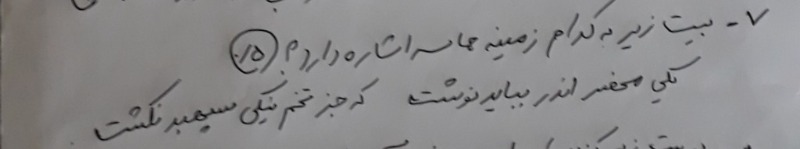 ۷- بیت زیر به کدام زمینه حماسه اشاره دارد؟ (۰/۵)
یکی محضر اندر بباید نوشت که جز تخم نیکی سپهبد نکشت